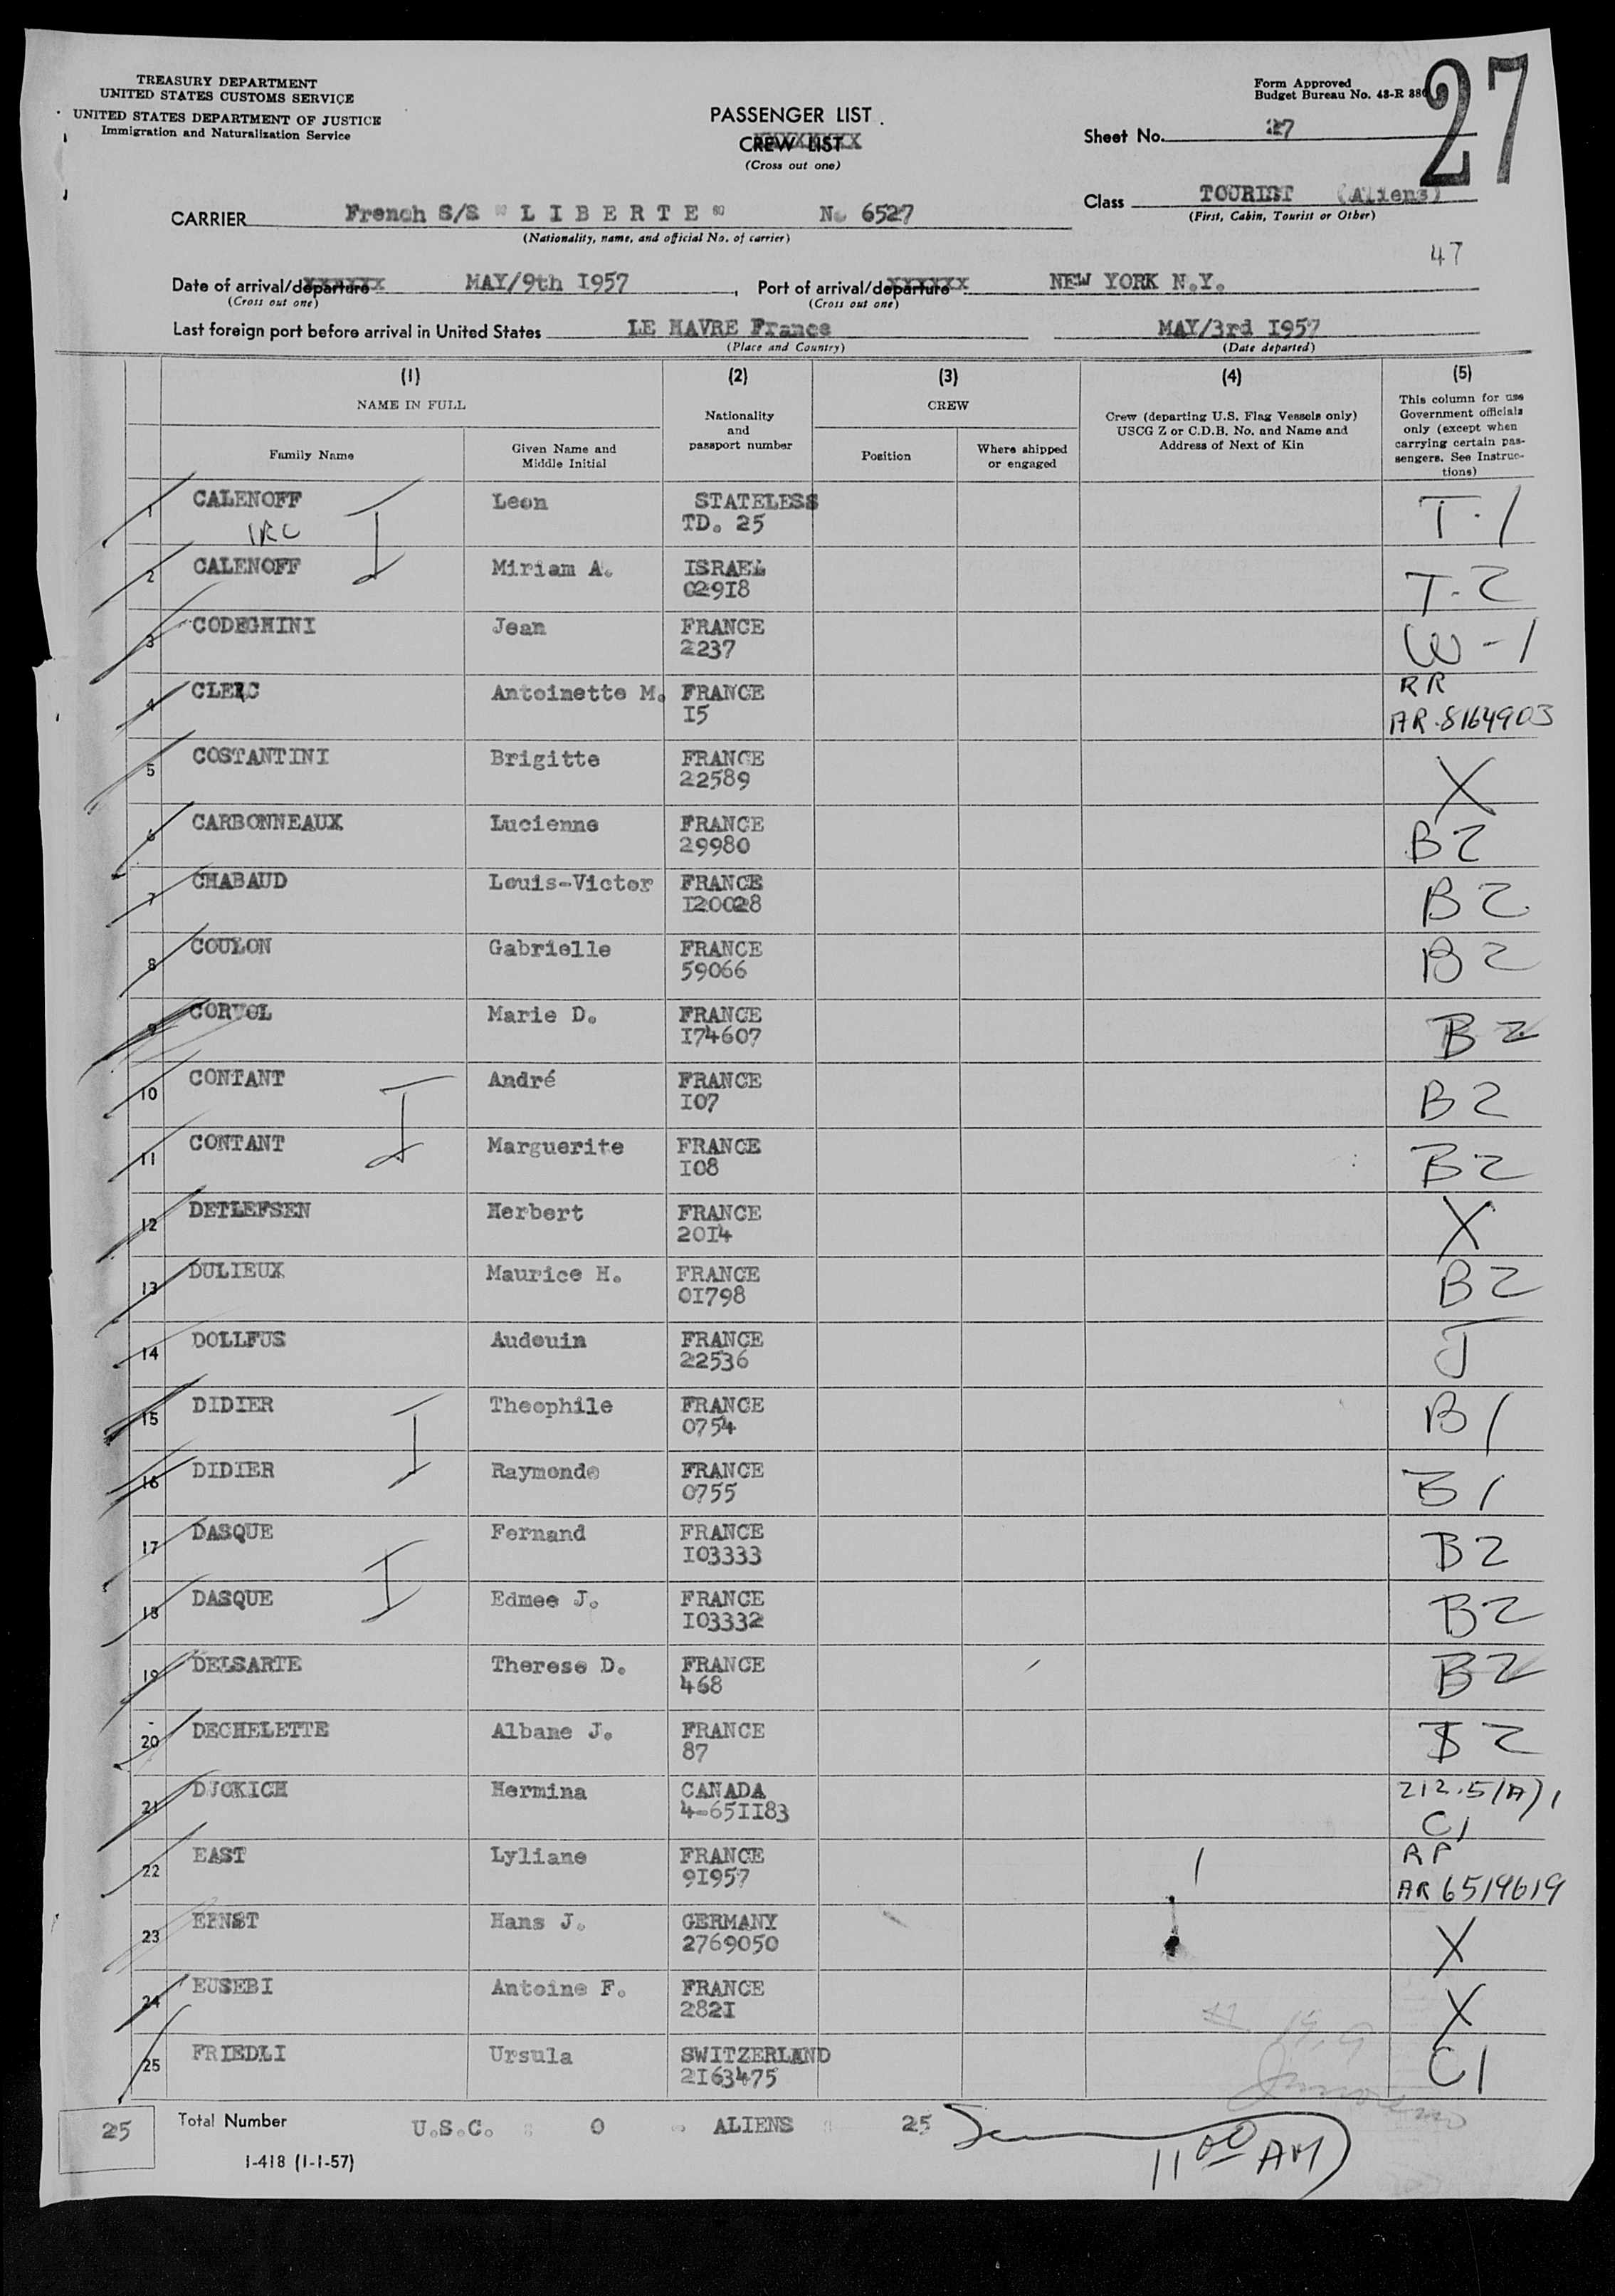 TREASURY DEPARTMENT
UNITED STATES CUSTOMS SERVICE
UNITED STATES DEPARTMENT OF JUSTICE
Immigration and Naturalization Service
PASSENGER LIST
CREW LIST
(Cross out one)
Form Approved
Budget Bureau No. 43-R
27
Sheet No. 27
Class TOURIST (Aliens)
(First, Cabin, Tourist or Other)
CARRIER French S/S " L I B E R T E " No 6527
(Nationality, name, and official No. of carrier)
47
Date of arrival/departure MAY/9th I957, Port of arrival/departure NEW YORK N.Y.
(Cross out one) (Cross out one)
Last foreign port before arrival in United States LE HAVRE France MAY/3rd I957
(Place and Country) (Date departed)
(1) (2) (3) (4) (5)
NAME IN FULL
Family Name
Given Name and
Middle Initial
Nationality
and
passport number
CREW
Position
Where shipped
or engaged
Crew (departing U.S. Flag Vessels only)
USCG Z or C.D.B. No. and Name and
Address of Next of Kin
This column for use
Government officials
only (except when
carrying certain pas-
sengers. See Instruc-
tions)
1 CALENOFF Leon STATELESS T-1
IRC TD. 25
2 CALENOFF Miriam A. ISRAEL T-2
029I8
3 CODEGHINI Jean FRANCE W-1
2237
4 CLERC Antoinette M. FRANCE RR
I5 AR-8164903
5 COSTANTINI Brigitte FRANCE X
22589
6 CARBONNEAUX Lucienne FRANCE B2
29980
7 CHABAUD Louis-Victor FRANCE B2
I20028
8 COULON Gabrielle FRANCE B2
59066
9 CORVOL Marie D. FRANCE B2
I74607
10 CONTANT André FRANCE B2
I07
11 CONTANT Marguerite FRANCE B2
I08
12 DETLEFSEN Herbert FRANCE X
20I4
13 DULIEUX Maurice H. FRANCE B2
0I798
14 DOLLFUS Audouin FRANCE J
22536
15 DIDIER Theophile FRANCE B1
0754
16 DIDIER Raymonde FRANCE B1
0755
17 DASQUE Fernand FRANCE B2
I03333
18 DASQUE Edmee J. FRANCE B2
I03332
19 DELSARTE Therese D. FRANCE B2
468
20 DECHELETTE Albane J. FRANCE B2
87
21 DJOKICH Hermina CANADA 212.5(A)1
4-65II83 C1
22 EAST Lyliane FRANCE RP
9I957 AR 6519619
23 ERNST Hans J. GERMANY X
2769050
24 EUSEBI Antoine F. FRANCE X
282I
25 FRIEDLI Ursula SWITZERLAND C1
2I63475
25 Total Number U.S.C. : 0 - ALIENS : 25
11 00 AM
I-418 (1-1-57)